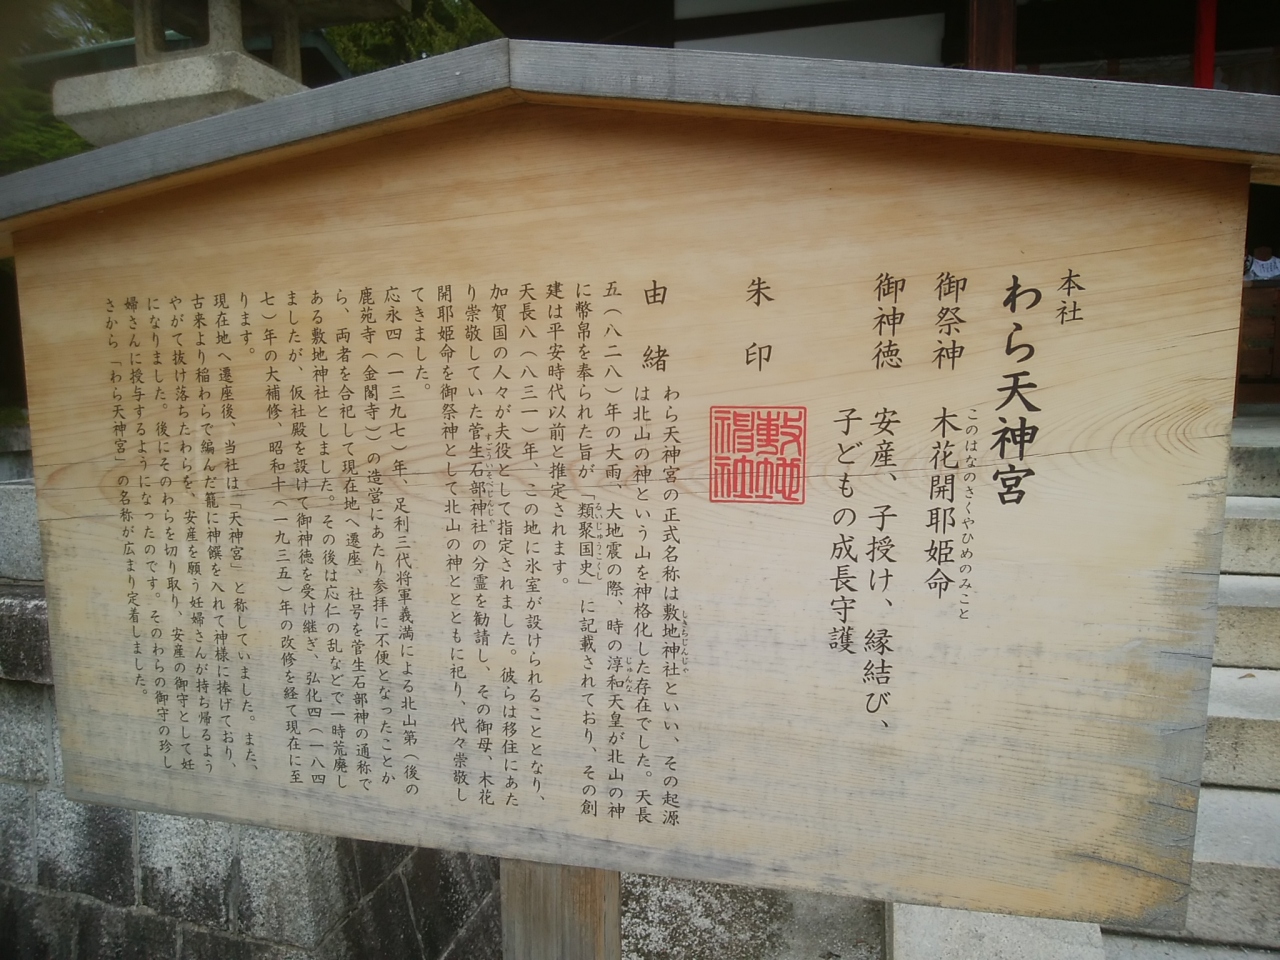 本社
わら天神宮
御祭神 木花開耶姫命
このはなのさくやひめのみこと
御神徳 安産、子授け、縁結び、
子どもの成長守護
朱印
敷地神社
由緒 わら天神宮の正式名称は敷地神社といい、その起源
しきちじんじゃ
は北山の神という山を神格化した存在でした。天長
五(八二八)年の大雨、大地震の際、時の淳和天皇が北山の神
じゅんな
に幣帛を奉られた旨が「類聚国史」に記載されており、その創
るいじゅうこくし
建は平安時代以前と推定されます。
天長八(八三一)年、この地に氷室が設けられることとなり、
加賀国の人々が夫役として指定されました。彼らは移住にあた
り崇敬していた菅生石部神社の分霊を勧請し、その御母、木花
すごういそべじんじゃ
開耶姫命を御祭神として北山の神とともに祀り、代々崇敬し
てきました。
応永四(一三九七)年、足利三代将軍義満による北山第(後の
鹿苑寺(金閣寺))の造営にあたり参拝に不便となったことか
ら、両者を合祀して現在地へ遷座、社号を菅生石部神の通称で
ある敷地神社としました。その後は応仁の乱などで一時荒廃し
ましたが、仮社殿を設けて御神徳を受け継ぎ、弘化四(一八四
七)年の大補修、昭和十(一九三五)年の改修を経て現在に至
ります。
現在地へ遷座後、当社は「天神宮」と称していました。また、
古来より稲わらで編んだ籠に神饌を入れて神様に捧げており、
やがて抜け落ちたわらを、安産を願う妊婦さんが持ち帰るよう
になりました。後にそのわらを切り取り、安産の御守として妊
婦さんに授与するようになったのです。そのわらの御守の珍し
さから「わら天神宮」の名称が広まり定着しました。